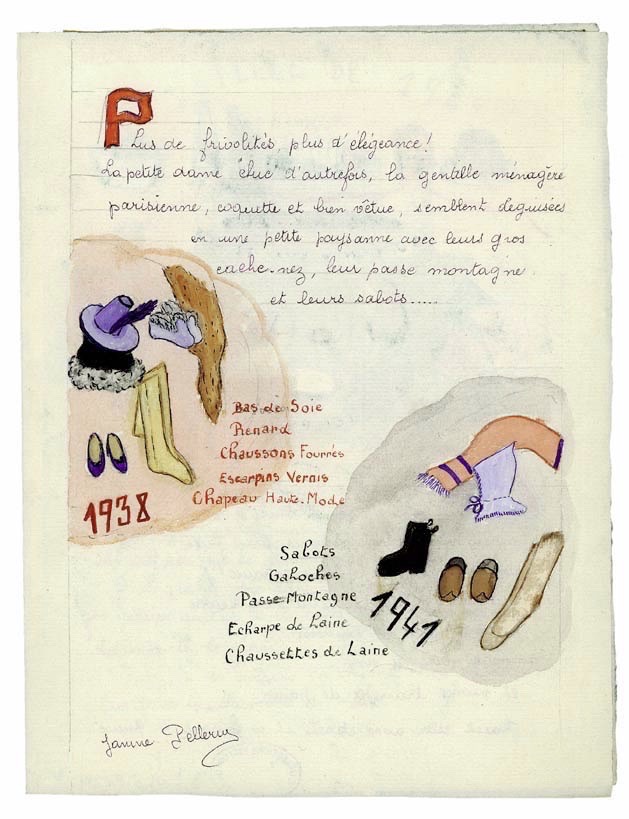 Plus de frivolités, plus d'élégance!
La petite dame chic d'autrefois, la gentille ménagère
parisienne, coquette et bien vêtue, semblent deguisées
en une petite paysanne avec leurs gros
cache-nez, leur passe montagne
et leurs sabots.....
Bas de Soie
Renard
Chaussons Fourrés
Escarpins Vernis
Chapeau Haute-Mode
1938
Sabots
Galoches
Passe Montagne
Echarpe de Laine
Chaussettes de Laine
1941
Janine Pellerin